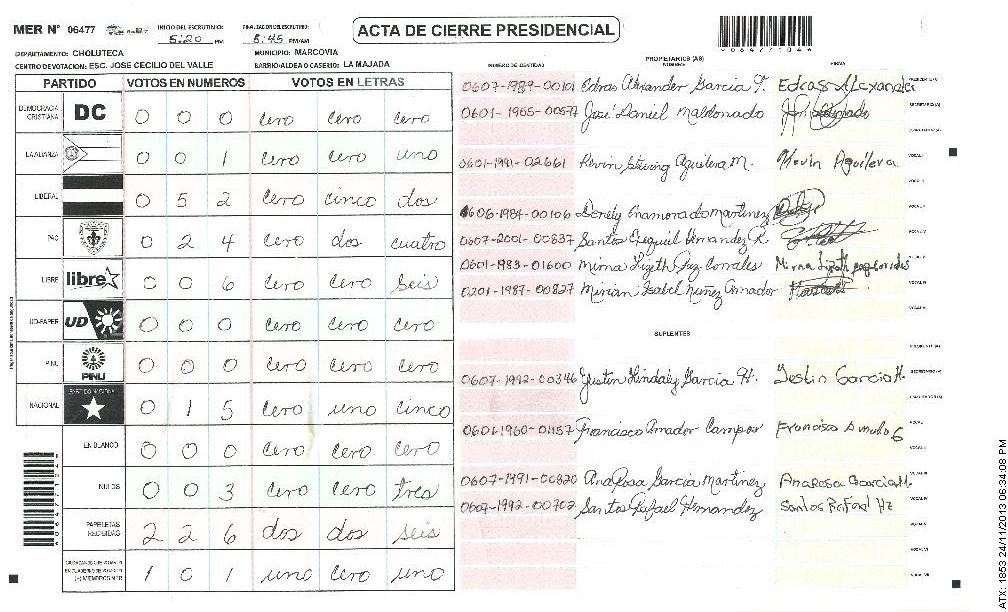 MER Nº 06477
INICIO DEL ESCRUTINIO: 5:20 PM
FINALIZACION DEL ESCRUTINIO: 8:45 PM/AM
ACTA DE CIERRE PRESIDENCIAL
DEPARTAMENTO: CHOLUTECA
MUNICIPIO: MARCOVIA
CENTRO DE VOTACION: ESC. JOSE CECILIO DEL VALLE
BARRIO/ALDEA O CASERIO: LA MAJADA
PARTIDO VOTOS EN NUMEROS VOTOS EN LETRAS
DEMOCRACIA CRISTIANA DC 0 0 0 cero cero cero
LA ALIANZA 0 0 1 cero cero uno
LIBERAL 0 5 2 cero cinco dos
PAC 0 2 4 cero dos cuatro
LIBRE libre 0 0 6 cero cero seis
UD-FAPER UD 0 0 0 cero cero cero
PINU PINU 0 0 0 cero cero cero
NACIONAL 0 1 5 cero uno cinco
EN BLANCO 0 0 0 cero cero cero
NULOS 0 0 3 cero cero tres
PAPELETAS RECIBIDAS 2 2 6 dos dos seis
1 0 1 uno cero uno
NUMERO DE IDENTIDAD
PROPIETARIOS (AS)
NOMBRE
FIRMA
0607-1989-00101 Edras Alexander Garcia
0601-1965-00577 José Daniel Maldonado
0601-1991-02661 Kevin Aguilera M. Kevin Aguilera
0606-1984-00106 Martinez
0607-2001-00837 Santos Hernandez R
0601-1983-01600 Mirna Lizeth Paz Corrales Mirna Lizeth
0201-1987-00827 Mirian Isabel Nuñez Amador
SUPLENTES
0607-1992-00346 Garcia H.
0601-1960-01157 Francisco Amador Campos Francisco
0607-1991-00820 Ana Rosa Garcia Martinez Ana Rosa Garcia M.
0607-1992-00702 Santos Rafael Hernandez Santos Rafael Hz
ATX: 1853 24/11/2013 06:34:08 PM